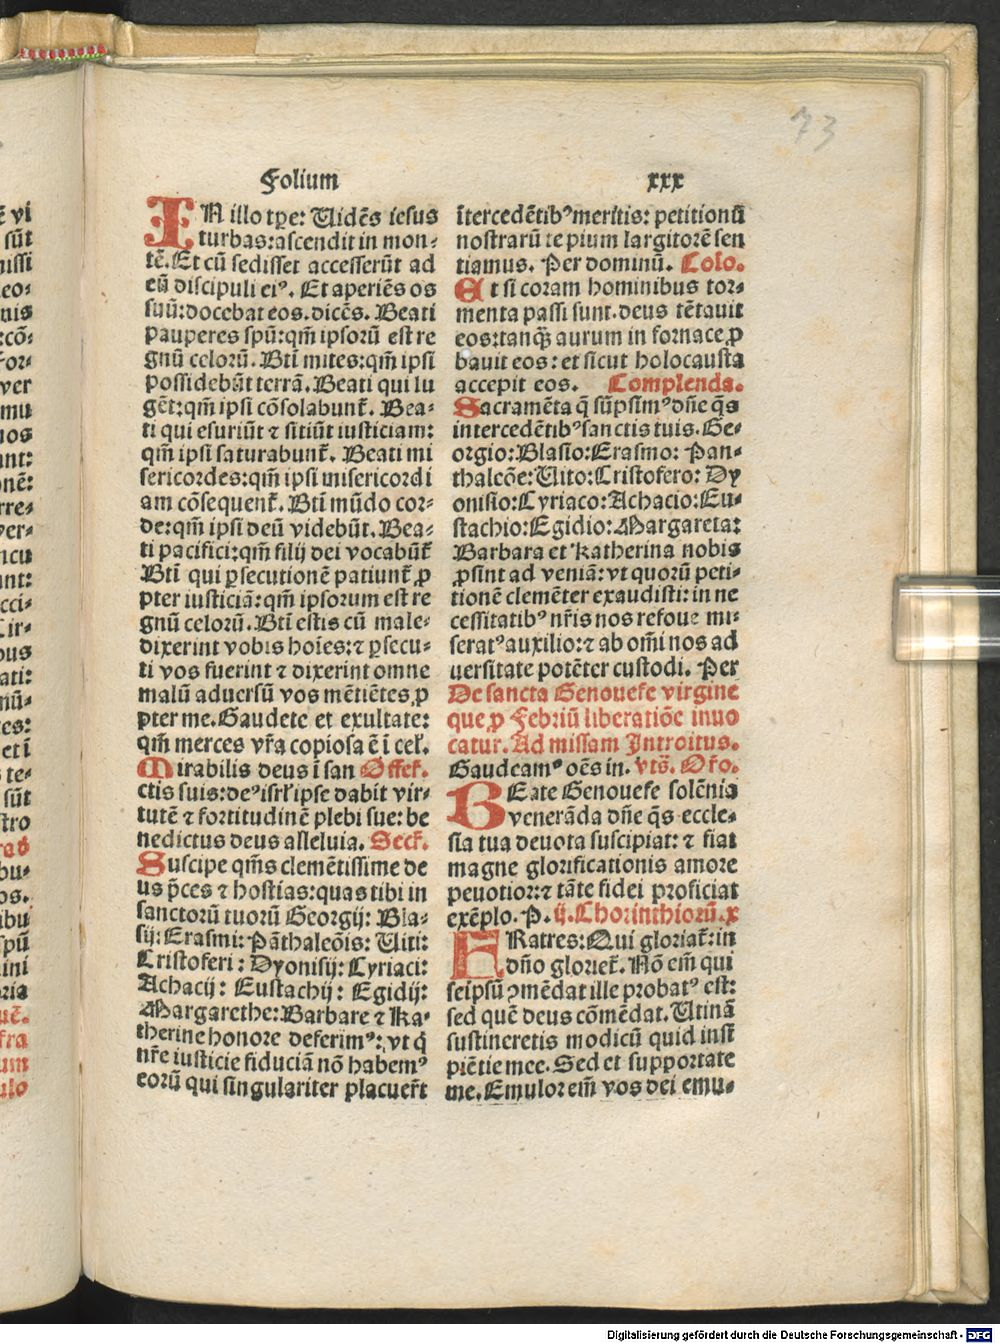 73
Folium xxx
IN illo tꝑe: Uidēs iesus
turbas: ascendit in mon⸗
tē. Et cū sedisset accesserūt ad
eū discipuli eiꝰ. Et aperiēs os
suū: docebat eos. dicēs. Beati
pauperes spū: qm̄ ipsorū est re
gnū celorū. Btī mites: qm̄ ipsi
possidebūt terrā. Beati qui lu
gēt: qm̄ ipsi cōsolabunt̄. Bea⸗
ti qui esuriūt ⁊ sitiūt iusticiam:
qm̄ ipsi saturabunt̄. Beati mi
sericordes: qm̄ ipsi misericordi
am cōsequent̄. Btī mūdo cor⸗
de: qm̄ ipsi deū videbūt. Bea⸗
ti pacifici: qm̄ filij dei vocabūt̄
Btī qui ꝑsecutionē patiunt̄ ꝓ
pter iusticiā: qm̄ ipsorum est re
gnū celorū. Btī estis cū male⸗
dixerint vobis hoīes: ⁊ ꝑsecu⸗
ti vos fuerint ⁊ dixerint omne
malū aduersū vos mētiētes ꝓ
pter me. Gaudete et exultate:
qm̄ merces vr̄a copiosa ē ī cel̄.
Mirabilis deus ī san Offer̄.
ctis suis: deꝰ isrl̄ ipse dabit vir⸗
tutē ⁊ fortitudinē plebi sue: be
nedictus deus alleluia. Secr̄.
Suscipe qm̄s clemētissime de
us p̄ces ⁊ hostias: quas tibi in
sanctorū tuorū Georgij: Bla⸗
sij: Erasmi: Pāthaleōis: Uiti:
Cristoferi: Dyonisij: Cyriaci:
Achacij: Eustachij: Egidij:
Margarethe: Barbare ⁊ Ka⸗
therine honore deferimꝰ: vt q̄
nr̄e iusticie fiduciā nō habemꝰ
eorū qui singulariter placuer̄t
ītercedētibꝰ meritis: petitionū
nostrarū te pium largitorē sen
tiamus. Per dominū. Colo.
Et si coram hominibus tor⸗
menta passi sunt. deus tētauit
eos: tanꝙ̄ aurum in fornace ꝓ
bauit eos: et sicut holocausta
accepit eos. Complenda.
Sacramēta q̄ sūpsimꝰ dn̄e q̄s
intercedētibꝰ sanctis tuis. Ge⸗
orgio: Blasio: Erasmo: Pan⸗
thalcōe: Uito: Cristofero: Dy
onisio: Cyriaco: Achacio: Eu⸗
stachio: Egidio: Margareta:
Barbara et Katherina nobis
ꝓsint ad veniā: vt quorū peti⸗
tionē clemēter exaudisti: in ne
cessitatibꝰ nr̄is nos refoue mi⸗
seratꝰ auxilio: ⁊ ab om̄i nos ad
uersitate potēter custodi. Per
De sancta Genouefe virgine
que ꝓ Febriū liberatiōe inuo
catur. Ad missam Introitus.
Gaudeamꝰ oēs in. vts̄. Or̄o.
BEate Genouefe solēnia
venerāda dn̄e q̄s eccle⸗
sia tua deuota suscipiat: ⁊ fiat
magne glorificationis amore
peuotior: ⁊ tāte fidei proficiat
exēplo. P. ij. Chorinthiorū. x
FRatres: Qui gloriat̄: in
dn̄o gloriet̄. Nō em̄ qui
seipsū ꝯmēdat ille probatꝰ est:
sed quē deus cōmēdat. Utinā
sustineretis modicū quid insī
piētie mee. Sed et supportate
me. Emulor em̄ vos dei emu⸗
Digitalisierung gefördert durch die Deutsche Forschungsgemeinschaft - DFG